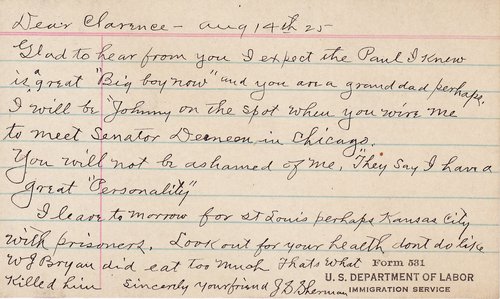 Dear Clarence - Aug 14th 25
Glad to hear from you I expect the Paul I knew
is a great "Big boy now" and you are a grand dad perhaps.
I will be "Johnny on the spot when you wire me
to meet Senator Deneen in Chicago.
You will not be ashamed of me, "They say I have a
great "Personality"
I leave to morrow for St Louis perhaps Kansas City
with prisoners. Look out for your health dont do like
W J Bryan did eat too much Thats what
Killed him Sincerely your friend J D Sherman
Form 531
U. S. DEPARTMENT OF LABOR
IMMIGRATION SERVICE